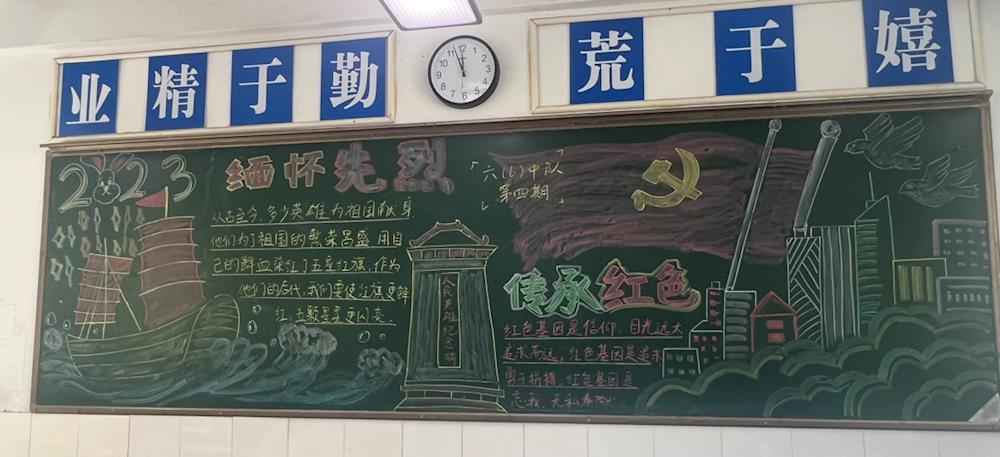 业精于勤
荒于嬉
2023
缅怀先烈
从古至今，多少英雄为祖国献身
他们为了祖国的繁荣昌盛 用自
己的鲜血染红了五星红旗，作为
他们的后代，我们要使红旗更鲜
红，五颗星星更闪亮
人民英雄纪念碑
六(6)中队
第四期
传承红色
红色基因是信仰、目光远大
追求高远，红色基因是追求
勇于拼搏，红色基因是
忘我、无私奉献
12
1
2
3
4
5
6
7
8
9
10
11